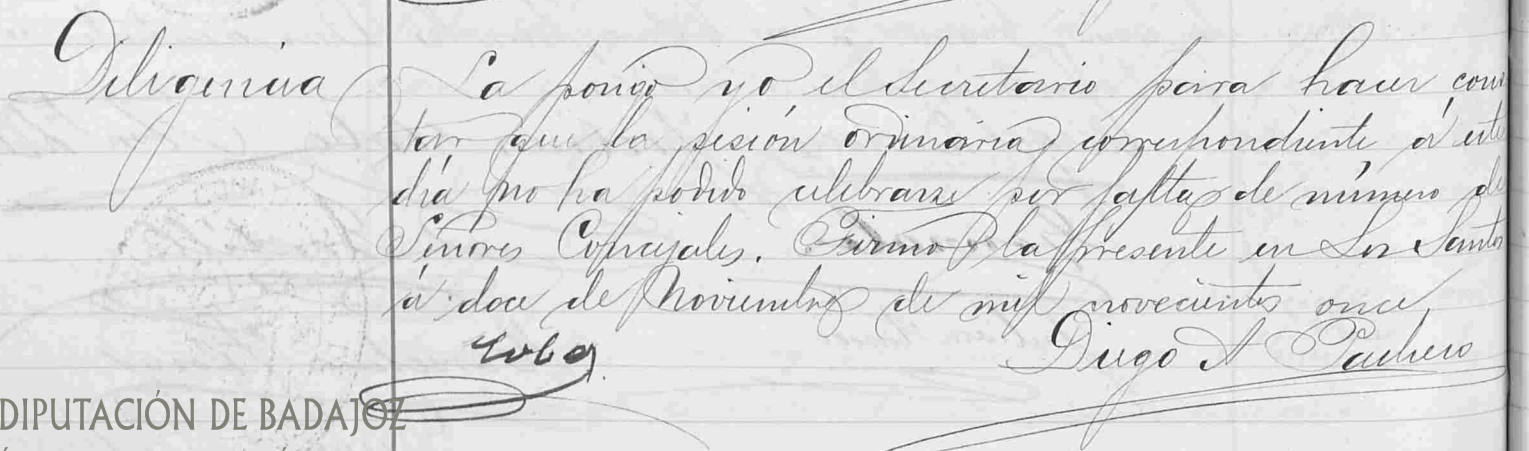 Diligencia
La pongo yo el Secretario para hacer cons
tar que la sesión ordinaria correspondiente á este
día no ha podido celebrarse por falta de número de
Señores Concejales. Firmo la presente en Los Santos
á doce de Noviembre de mil novecientos once
Diego A Pacheco
DIPUTACIÓN DE BADAJOZ